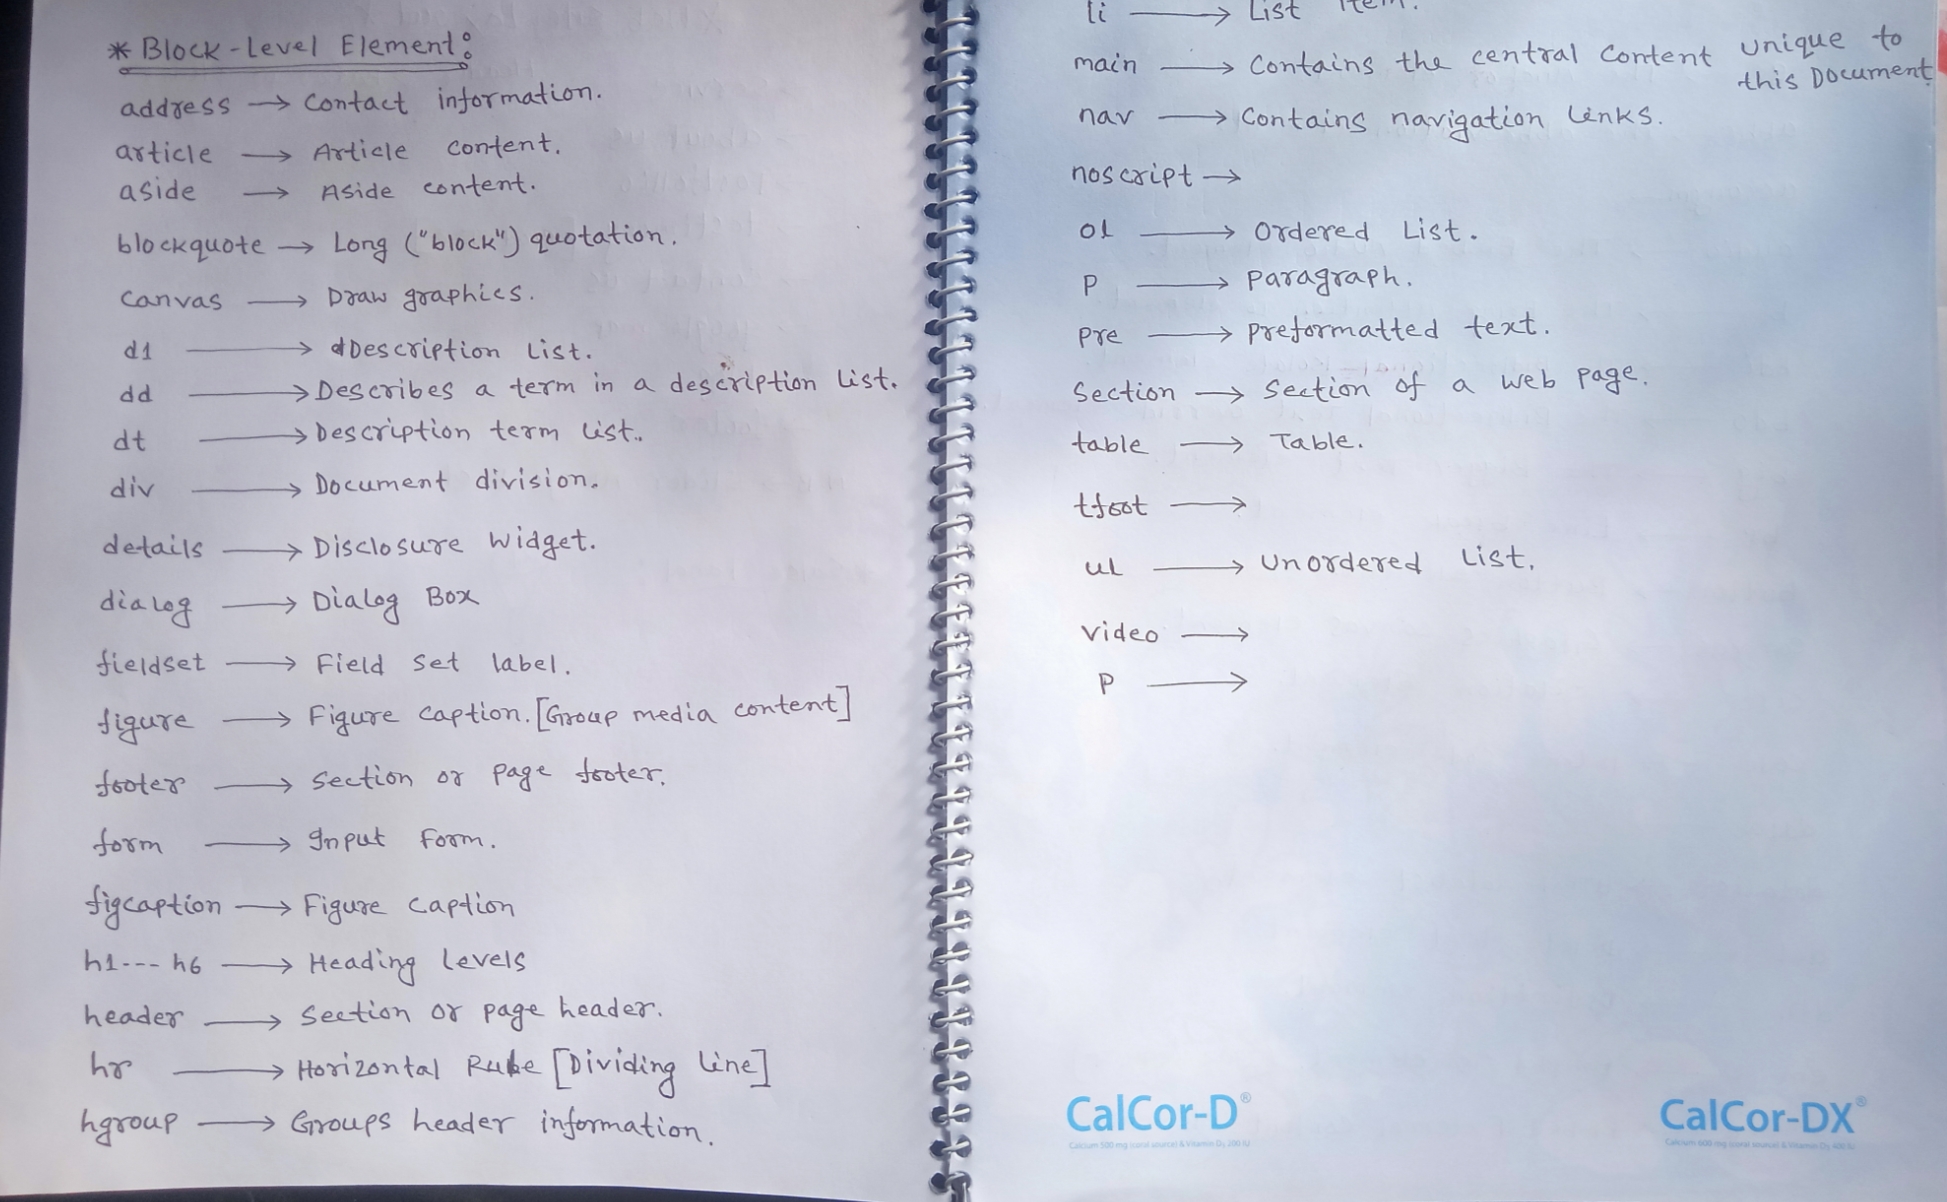 * Block-Level Element:
address → Contact information.
article → Article content.
aside → Aside content.
blockquote → Long ("block") quotation.
canvas → Draw graphics.
dl → Description List.
dd → Describes a term in a description list.
dt → Description term list..
div → Document division.
details → Disclosure widget.
dialog → Dialog Box
fieldset → Field set label.
figure → Figure caption. [Group media content]
footer → Section or page footer.
form → Input Form.
figcaption → Figure caption
h1--- h6 → Heading Levels
header → Section or page header.
hr → Horizontal Rule [Dividing line]
hgroup → Groups header information.
li → List item.
main → Contains the central content unique to
this Document
nav → Contains navigation links.
noscript →
ol → Ordered List.
P → Paragraph.
pre → preformatted text.
section → Section of a web page.
table → Table.
tfoot →
ul → Unordered List.
video →
P →
CalCor-D®
Calcium 500 mg (coral source) & Vitamin D₃ 200 IU
CalCor-DX®